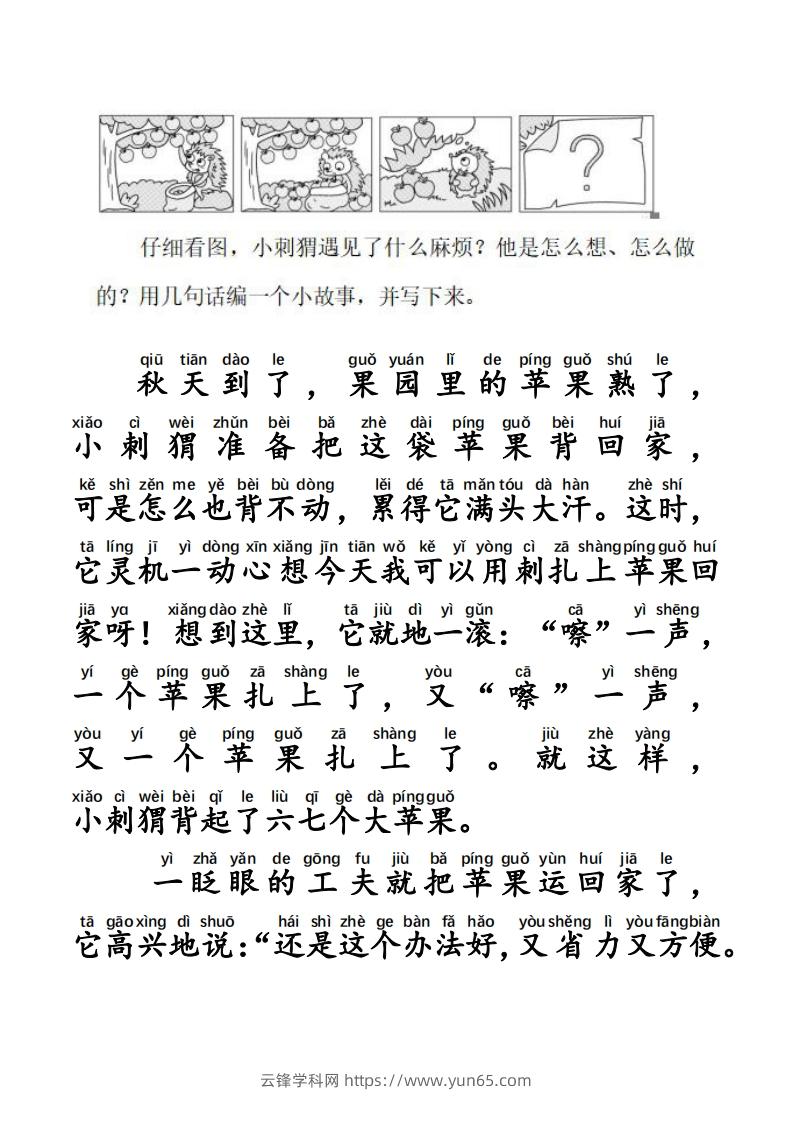 ?
仔细看图，小刺猬遇见了什么麻烦？他是怎么想、怎么做
的？用几句话编一个小故事，并写下来。
qiū tiān dào le guǒ yuán lǐ de píng guǒ shú le
秋天到了，果园里的苹果熟了，
xiǎo cì wèi zhǔn bèi bǎ zhè dài píng guǒ bèi huí jiā
小刺猬准备把这袋苹果背回家，
kě shì zěn me yě bèi bù dòng lěi dé tā mǎn tóu dà hàn zhè shí
可是怎么也背不动，累得它满头大汗。这时，
tā líng jī yì dòng xīn xiǎng jīn tiān wǒ kě yǐ yòng cì zā shàng píng guǒ huí
它灵机一动心想今天我可以用刺扎上苹果回
jiā ya xiǎng dào zhè lǐ tā jiù dì yì gǔn cā yì shēng
家呀！想到这里，它就地一滚：“嚓”一声，
yí gè píng guǒ zā shàng le yòu cā yì shēng
一个苹果扎上了，又“嚓”一声，
yòu yí gè píng guǒ zā shàng le jiù zhè yàng
又一个苹果扎上了。就这样，
xiǎo cì wèi bèi qǐ le liù qī gè dà píng guǒ
小刺猬背起了六七个大苹果。
yì zhǎ yǎn de gōng fu jiù bǎ píng guǒ yùn huí jiā le
一眨眼的工夫就把苹果运回家了，
tā gāo xìng dì shuō hái shì zhè ge bàn fǎ hǎo yòu shěng lì yòu fāng biàn
它高兴地说：“还是这个办法好，又省力又方便。
云锋学科网 https://www.yun65.com